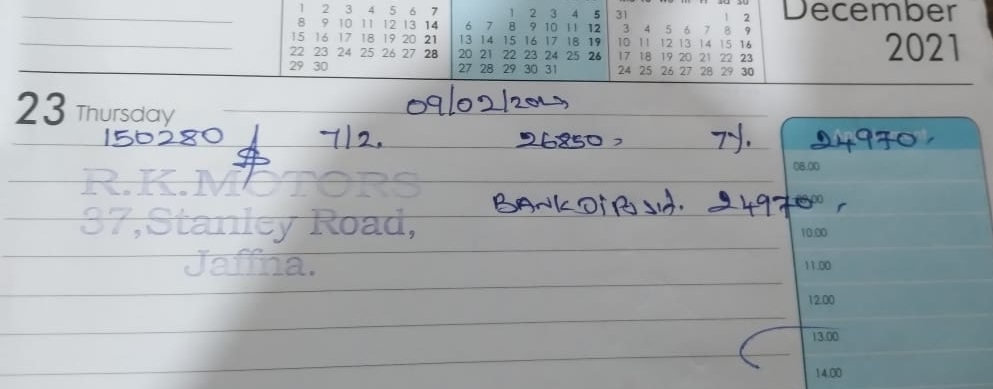 1 2 3 4 5 6 7 1 2 3 4 5 31 1 2 December
8 9 10 11 12 13 14 6 7 8 9 10 11 12 3 4 5 6 7 8 9
15 16 17 18 19 20 21 13 14 15 16 17 18 19 10 11 12 13 14 15 16 2021
22 23 24 25 26 27 28 20 21 22 23 24 25 26 17 18 19 20 21 22 23
29 30 27 28 29 30 31 24 25 26 27 28 29 30
23 Thursday 09/02/2023
150280 7/2. 26850 7%. 24970
08.00
R.K.MOTORS
BANK 24970
37,Stanley Road,
10.00
Jaffna.
11.00
12.00
13.00
14.00